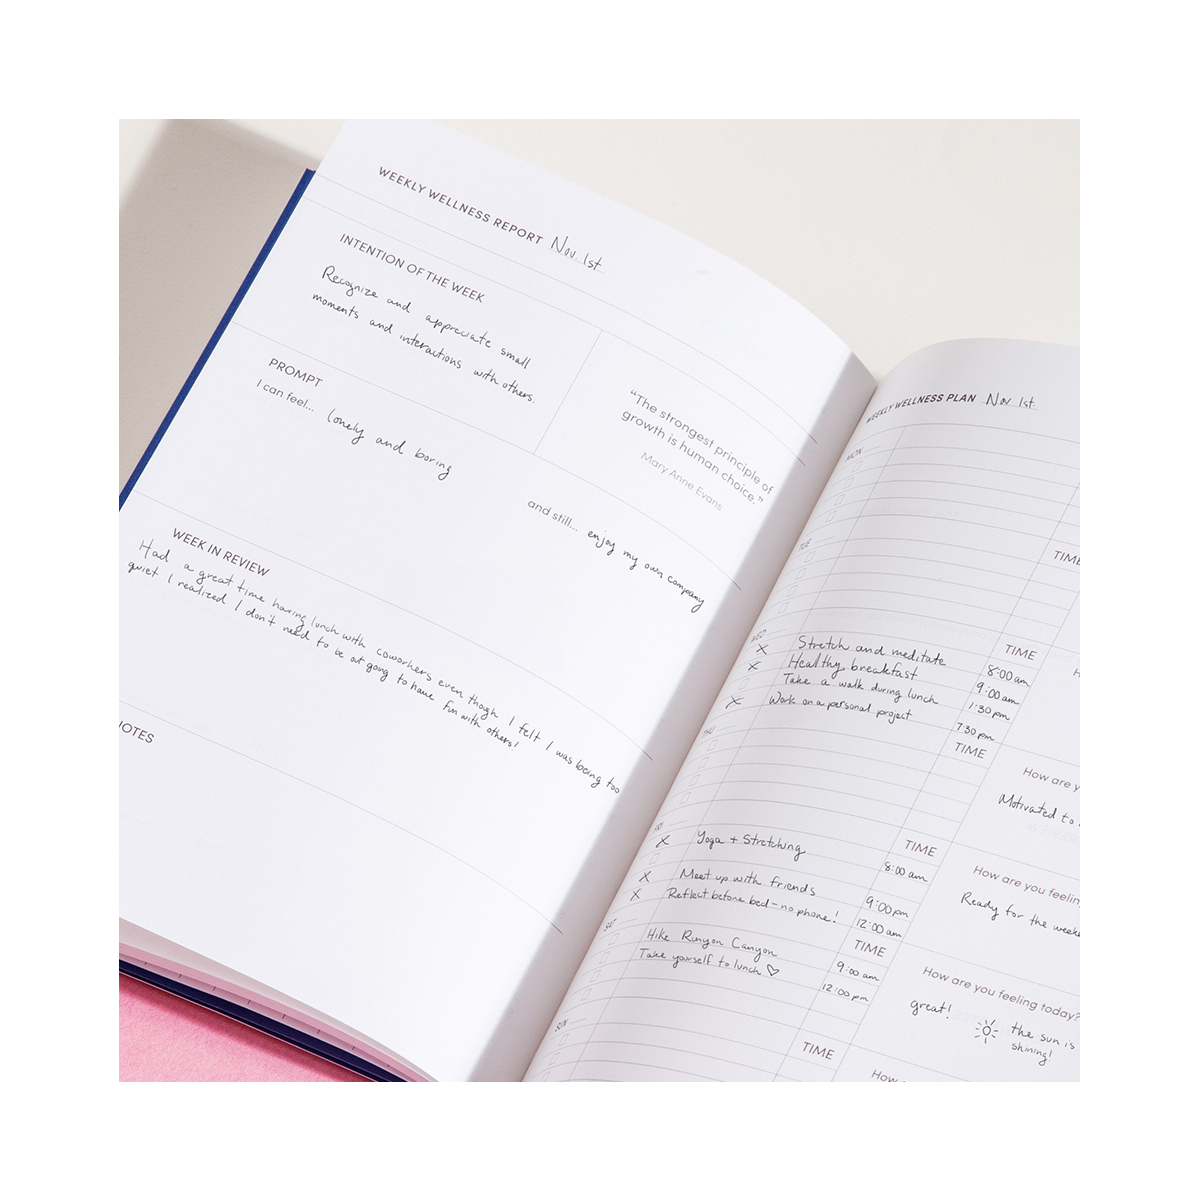 WEEKLY WELLNESS REPORT Nov. 1st
INTENTION OF THE WEEK
Recognize and appreciate small
moments and interactions with others.
"The strongest principle of
growth is human choice."
Mary Anne Evans
PROMPT
I can feel... lonely and boring
and still... enjoy my own company
WEEK IN REVIEW
Had a great time having lunch with coworkers even though I felt I was being too
quiet I realized I don't need to be out going to have fun with others!
NOTES
WEEKLY WELLNESS PLAN Nov 1st.
MON
TIME
TUE
TIME
WED
Stretch and meditate 8:00 am
Healthy breakfast 9:00 am
Take a walk during lunch 1:30 pm
Work on a personal project 7:30 pm
TIME
THU
How are y
Motivated to
TIME
FRI
Yoga + Stretching 8:00 am
Meet up with friends 9:00 pm
Reflect before bed - no phone! 12:00 am
How are you feelin
Ready for the weeke
TIME
SAT
Hike Runyon Canyon 9:00 am
Take yourself to lunch ♡ 12:00 pm
How are you feeling today?
great!
the sun is
shining!
TIME
SUN
How